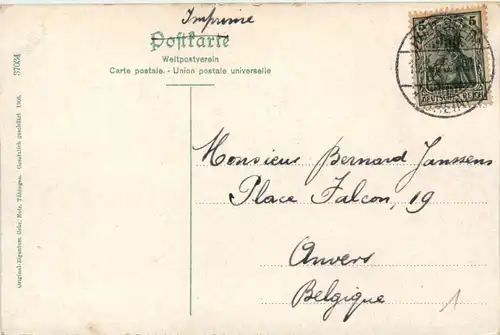 Imprimé
Postkarte
Weltpostverein
Carte postale. - Union postale universelle
37004
Original-Eigentum Gebr. Metz, Tübingen. Gesetzlich geschützt 1906.
5 5
DEUTSCHES REICH
Monsieur Bernard Janssens
Place Falcon, 19
Anvers
Belgique
1